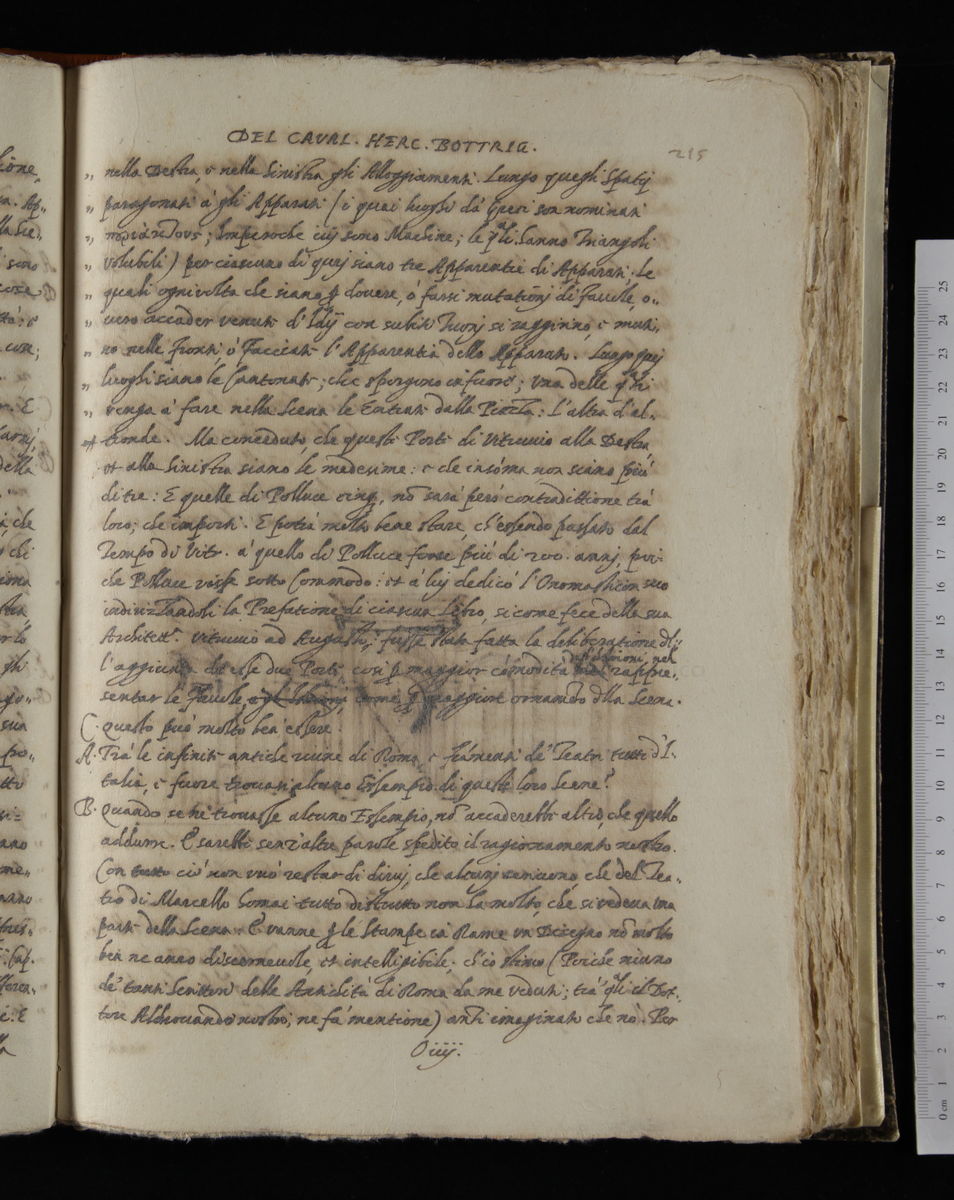 DEL CAVAL. HERC. BOTTRIG.
215
„ nella Destra, e nella Sinistra gli Alloggiamenti. Lungo quegli Spatij
„ paragonati à gli Apparati (i quai luoghi dà Greci son nominati
„ περιάκτους; Imperoche iuj sono Machine; le q̃li hanno Triangoli
„ volubili) per ciascuno di quej siano tre Apparentie di Apparati; Le
„ quali ogni volta che siano p̱ douere, ò farsi mutationj di fauole, o„
„ uero accader venuti d'Idij con subiti Tuonj si raggirino, e muti„
„ no nelle fronti ò Facciate l'Apparentia dello Apparato. Lungo quej
„ luoghi siano le Cantonate; che sporgino in fuori; una delle q̃li
„ venga à fare nella Scena le Entrate dalla Piazza: L'altra d'al„
tronde. Ma conceduto, che queste Porte di Vitruuio alla Destra,
et alla Sinistra siano le medesime: e che insóma non siano più
di tre: E quelle di Polluce cinq̃, nõ sarà però contradittione trà
loro; che importi. E potrà molto bene stare, ch'essendo passato dal
Tempo di Vitr. à quello di Polluce forse più di 200. annj, poi„
che Polluce visse sotto Commodo: et à luj dedicò l'Onomasticon suo
indirizzandoli la Prefatione di ciascun Libro, si come fece della sua
Architett.ª Vitruuio ad Augusto; fusse stata fatta la deliberatione d̃l„
l'aggiunta di esse due Porte, così p̱ maggior cómodità nel rappre„
sentar le Fauole, come p̱ maggiore ornamẽto d̃lla Scena.
C. Questo può molto ben essere.
A. Trà le infinite antiche ruine di Roma, e frámenti de' Teatri tutti d'I„
talia, e fuore trouasi alcuno Essempio di queste loro Scene?
B. Quando se nè trouasse alcuno Essempio, nõ accaderebbe altro, che quello
addurre. E sarebbe senz'altre parole spedito il ragionamento nostro.
Con tutto ciò non vuò restar di dirui, che alcunj tengono, che del Tea„
tro di Marcello homai tutto distrutto non hà molto, che si vedeua una
parte della Scena. E vanne p̱ le Stampe in Rame un Disegno nõ molto
ben ne anco discerneuole, et intelligibile. ch'io stimo (Perche niuno
de' tanti Scrittori delle Antichità di Roma da me veduti; trà q̃li il Dot„
tore Aldrouando nostro; ne fà mentione) anti imaginato che nò. Per
O iiij.